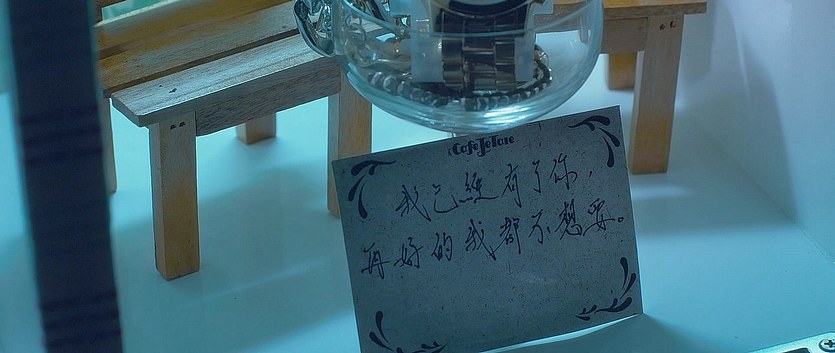 CafeJeTaie
我己經有了你，
再好的我都不想要。